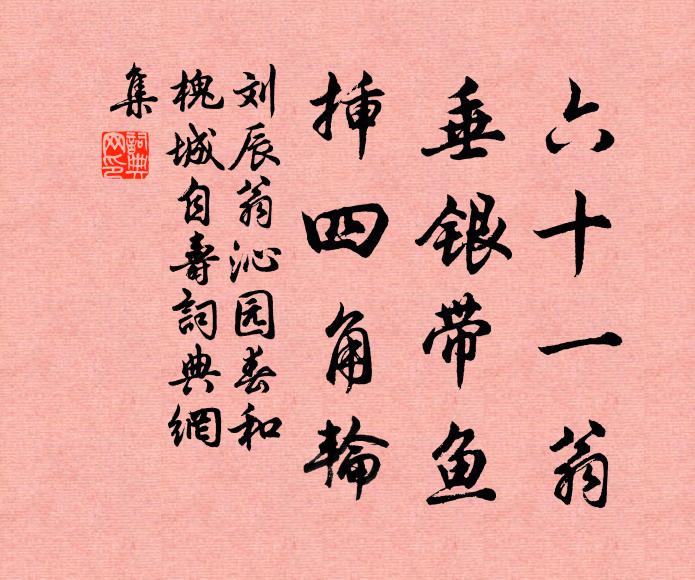 六十一翁
垂银带鱼
揷四角輪
刘辰翁沁园春和
槐城自壽詞典網
集
詞典網印